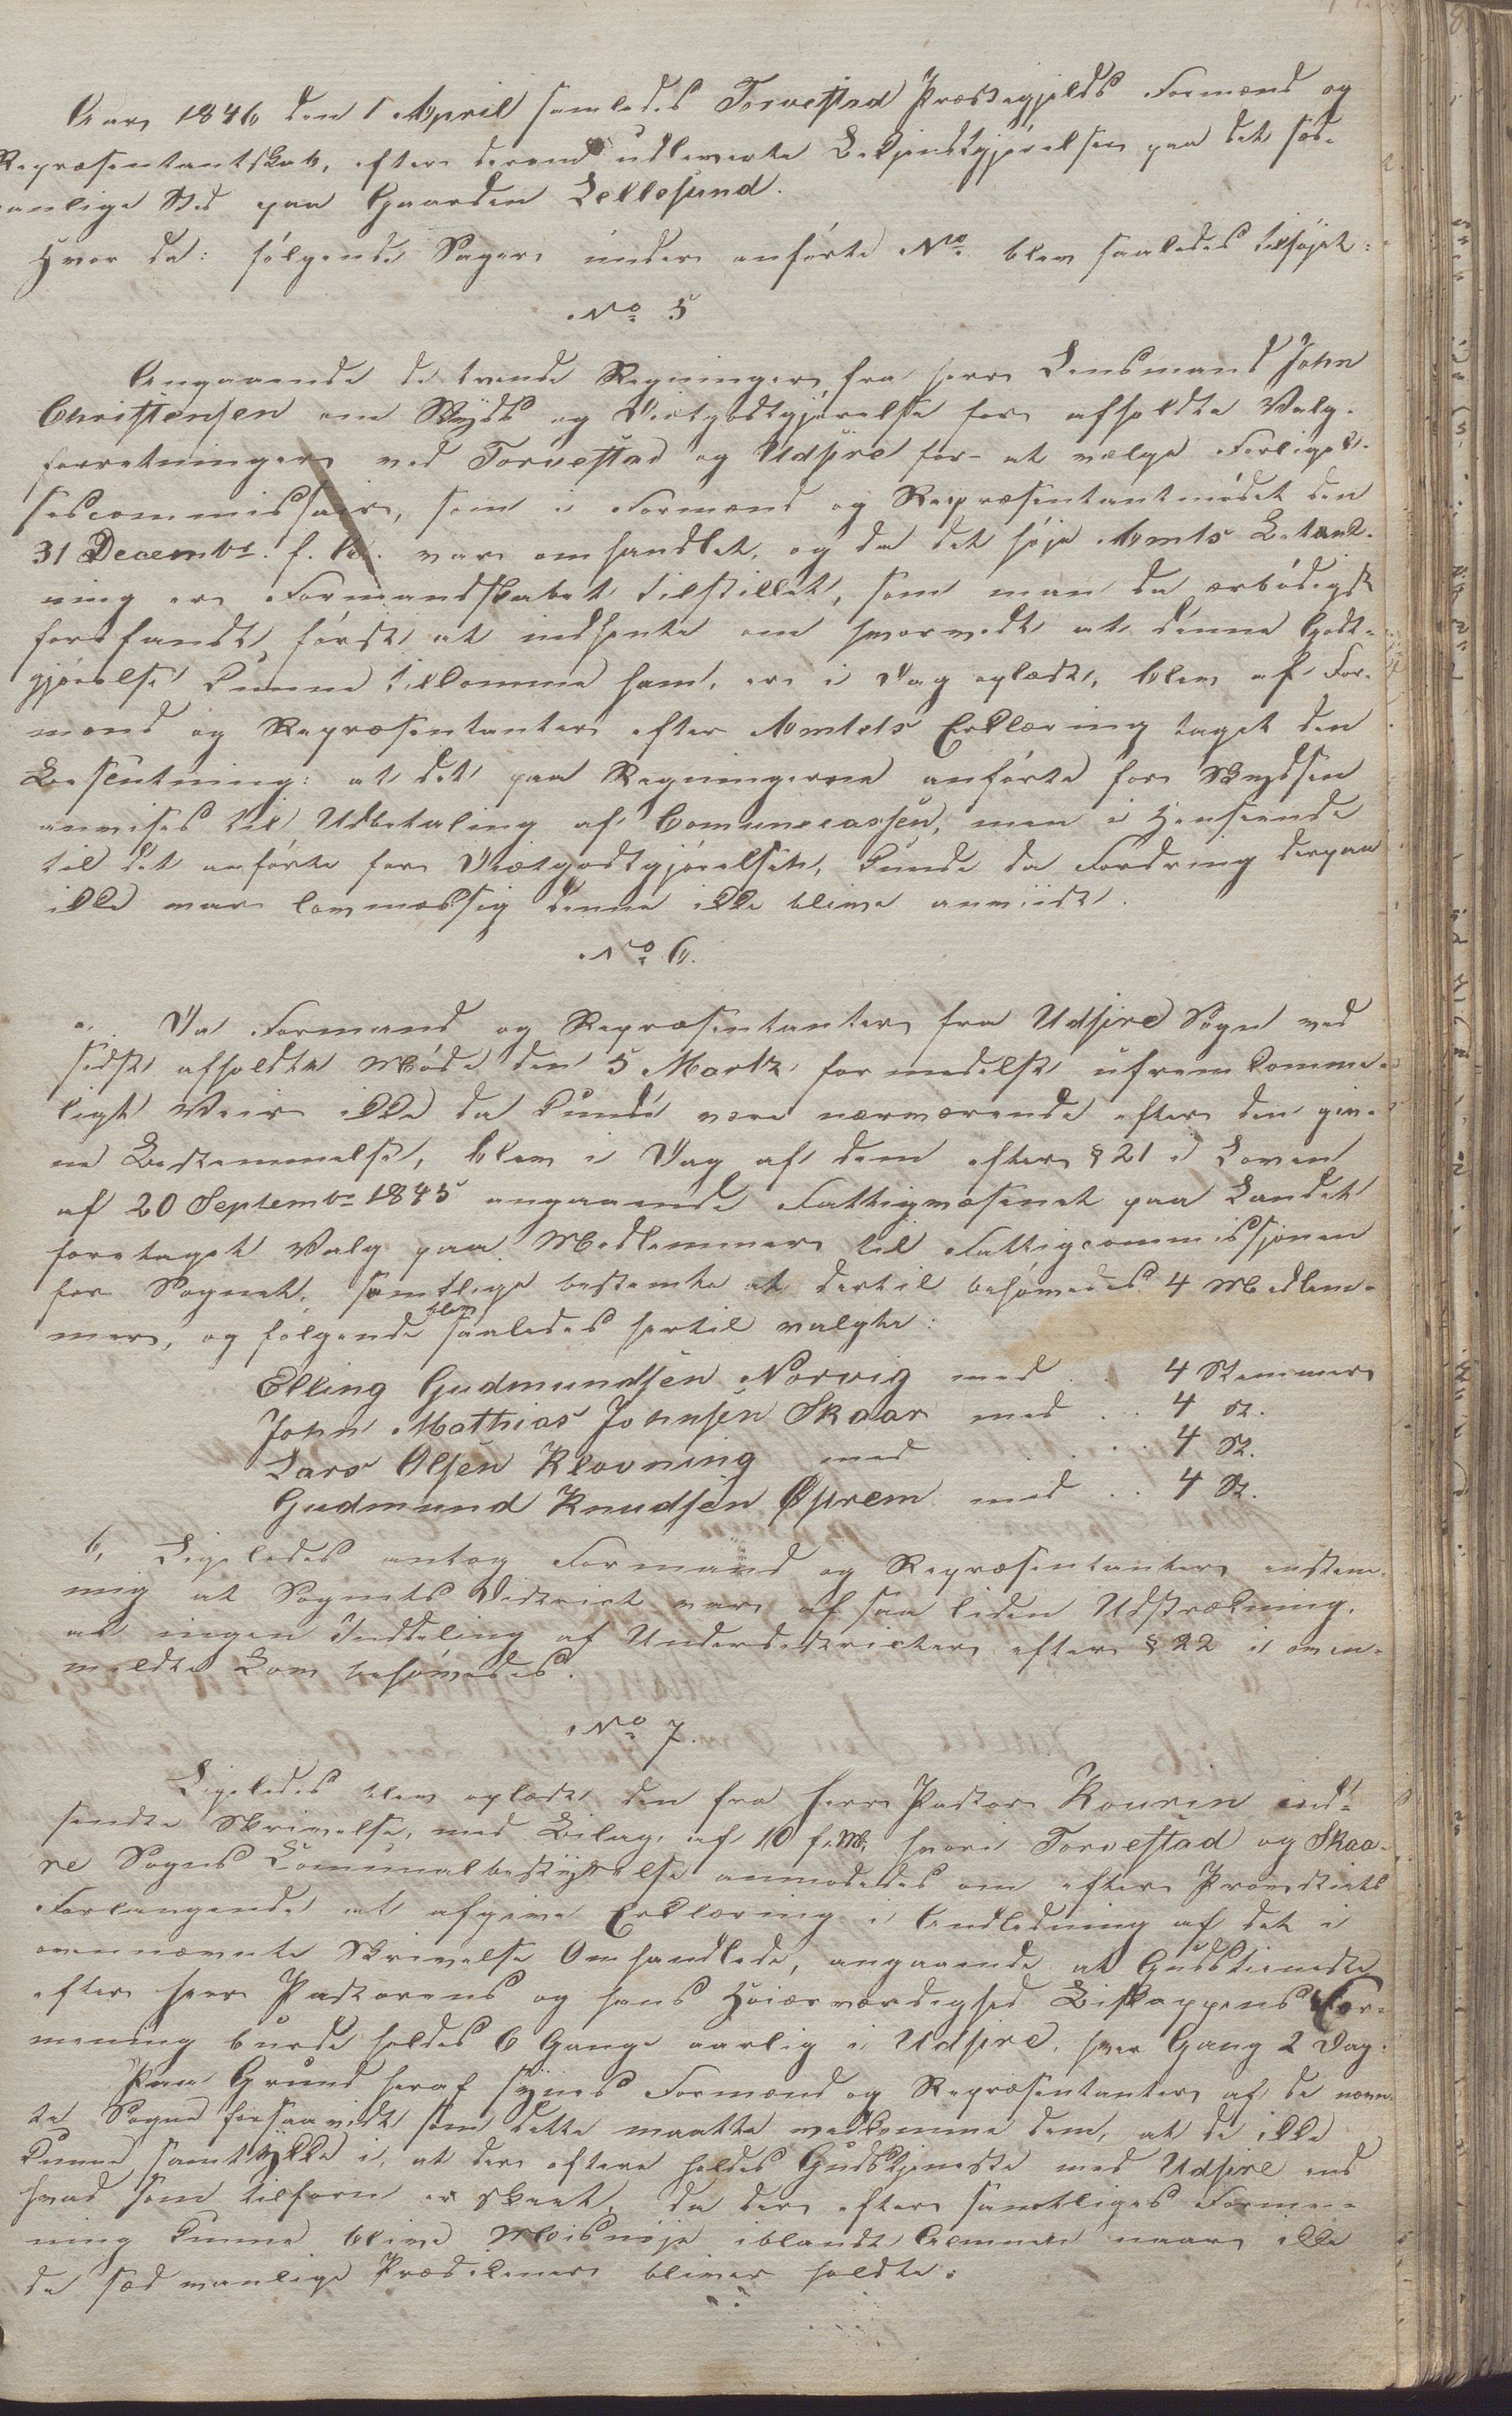 Aar 1846 den 1 April samledes Torvestad Præstegjelds Formænd og
Repræsentantskab, efter derom udleverte Bekjendtgjörelser paa det sæd-
vanlige Sted paa Gaarden Lillesund.
Hvor da: fölgende Sager under anförte No blev saaledes tilföjet:
No 5
Angaaende de tvende Regninger fra Herr Lensmand John
Christensen om Skyds og Diætgodtgjörelse for afholdte Valg-
forretninger ved Torvestad og Udsire for at vælge Forligel-
sescommissair, som i Formænd og Repræsentantmödet den
31 Decembr. f. A. var omhandlet, og da det höje Amts Betænk-
ning er Formandskabet tilstillet, som man da ærbödigst
forefandt först at indhente om hvorvidt at denne Godt-
gjörelse kunne tilkomme ham, er i Dag oplæst, blev af For-
mænd og Repræsentanter efter Amtets Erklæring taget den
Beslutning: at det paa Regningerne anförte for Skydsen
anvises til Udbetaling af Comunecassen, men i Henseende
til det anförte for Diætgodtgjörelsen, kunde da Fordring derpaa
ikke var lovmæssig denne ikke blive anviist.
No 6.
a, Da Formænd og Repræsentanter fra Udsire Sogn ved
sidst afholdte Möde den 5 Martz formedelst ufremkomme-
ligt Veir ikke da kunde være nærværende efter den giv-
ne Bestemmelse, blev i Dag af dem efter § 21 i Loven
af 20 Septembr 1845 angaaende Fattigvæsenet paa Landet
foretaget Valg paa Medlemmer til Fattigcommissjonen
for Sognet, samtlige bestemte at dertil behövedes 4 Medlem-
mer, og fölgende blev saaledes hertil valgte:
Elling Gudmundsen Norvig med . . 4 Stemmer
John Mathias Johnsen Skaar med . . 4 St.
Lars Olsen Klovning med . . . 4 St.
Gudmund Knudsen Øfrem med . . 4 St.
b, Ligeledes antog Formænd og Repræsentanter enstem-
mig at Sognets District var af saa liden Udstrækning,
at ingen Inddeling af Underdistricter efter § 22 i oven-
meldte Lov behövedes.
No 7.
Ligeledes blev oplæst den fra Herr Pastor Kouren ind-
sendte Skrivelse, med Bilag, af 10 f. M. hvori Torvestad og Skaa-
re Sogns Comunalbestyrelse anmodedes om efter Provstiets
Forlangende at afgive Erklæring i Andledning af det i
ovennævnte Skrivelse Omhandlede, angaaende at Gudstieneste
efter Herr Pastorens og hans Höiærværdighed Biskoppens For-
mening burde holdes 6 Gange aarlig i Udsire, hver Gang 2 Dag.
Paa Grund heraf synes Formænd og Repræsentanter af de nævn-
te Sogne forsaavidt som dette maatte vedkomme dem, at de ikke
kunne samtykke i, at der oftere holdes Gudstjeneste ved Udsire end
hvad som tilforn er skeet, da der efter samtliges Forme-
ning kunne blive Misnöje iblandt Almuen naar ikke
de sædvanlige Prædikener bliver holdte.